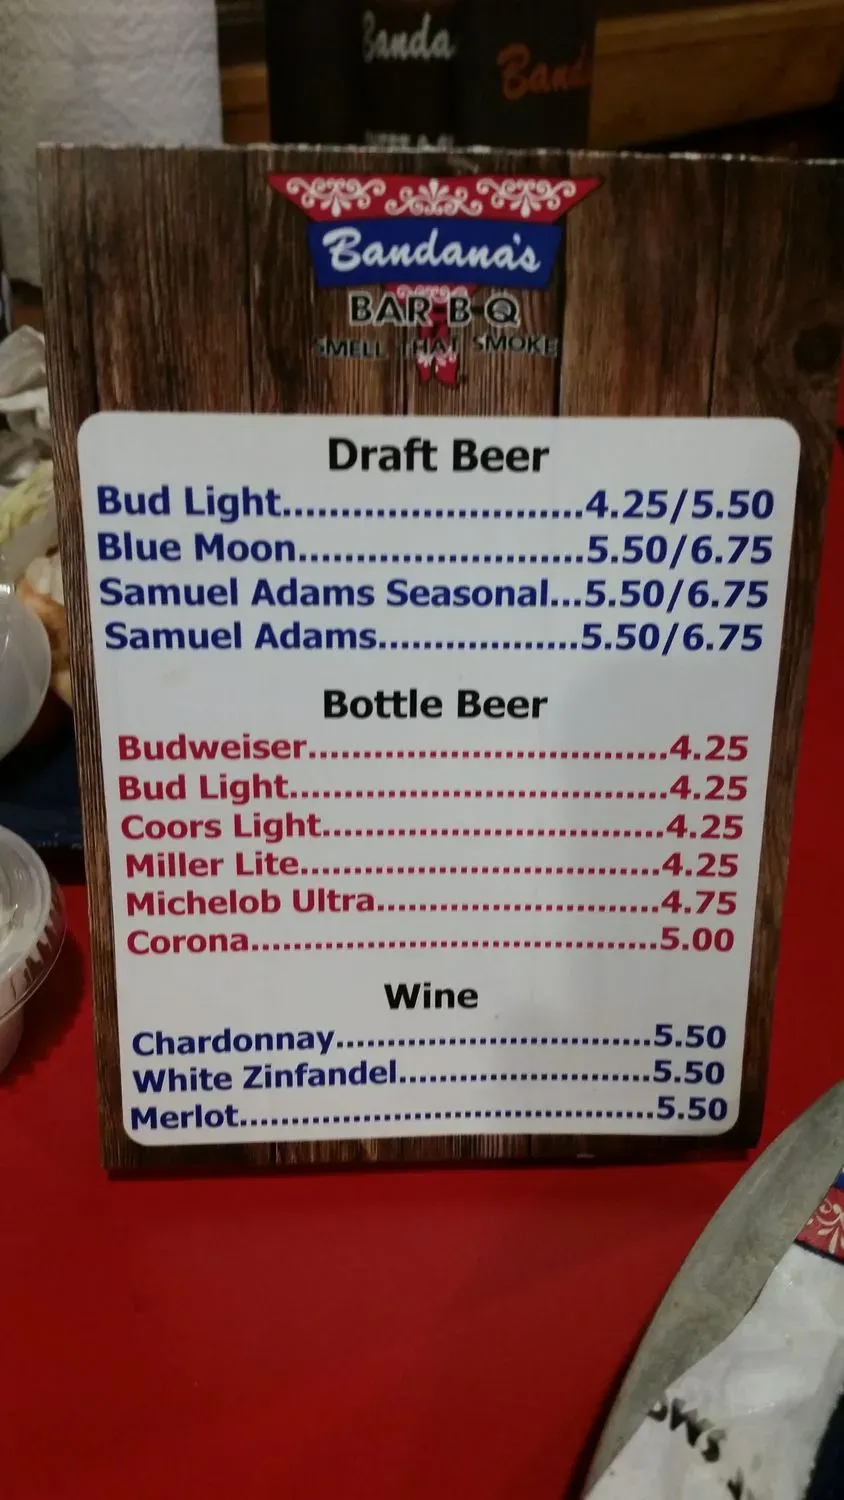 Banda
Band
Bandana's
BAR-B-Q
SMELL THAT SMOKE
Draft Beer
Bud Light............................4.25/5.50
Blue Moon...........................5.50/6.75
Samuel Adams Seasonal...5.50/6.75
Samuel Adams...................5.50/6.75
Bottle Beer
Budweiser....................................4.25
Bud Light......................................4.25
Coors Light..................................4.25
Miller Lite.....................................4.25
Michelob Ultra.............................4.75
Corona.........................................5.00
Wine
Chardonnay................................5.50
White Zinfandel..........................5.50
Merlot..........................................5.50